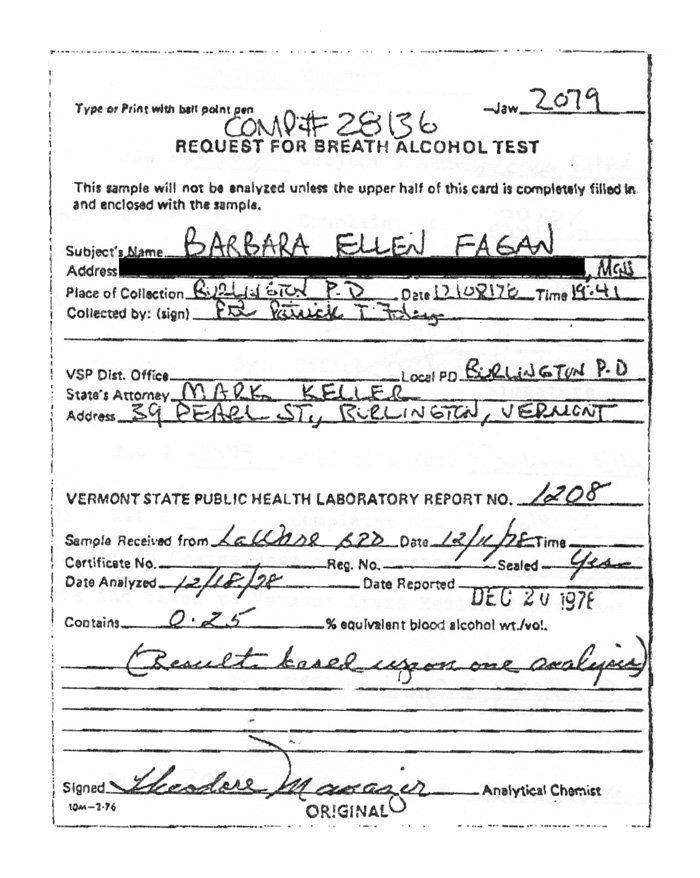 Type or Print with ball point pen
Jaw 2079
COMP# 28136
REQUEST FOR BREATH ALCOHOL TEST
This sample will not be analyzed unless the upper half of this card is completely filled in
and enclosed with the sample.
Subject's Name BARBARA ELLEN FAGAN
Address , Mass
Place of Collection BURLINGTON P.D Date 12/08/78 Time 19:41
Collected by: (sign) Patrick T. Foley
VSP Dist. Office Local PD BURLINGTON P.D
State's Attorney MARK KELLER
Address 39 PEARL ST., BURLINGTON, VERMONT
VERMONT STATE PUBLIC HEALTH LABORATORY REPORT NO. 1208
Sample Received from LaWare BPD Date 12/11/78 Time
Certificate No. Reg. No. Sealed Yes
Date Analyzed 12/18/78 Date Reported DEC 20 1978
Contains 0.25 % equivalent blood alcohol wt./vol.
(Results based upon one analysis)
Signed Theodore Analytical Chemist
10M-2-76
ORIGINAL